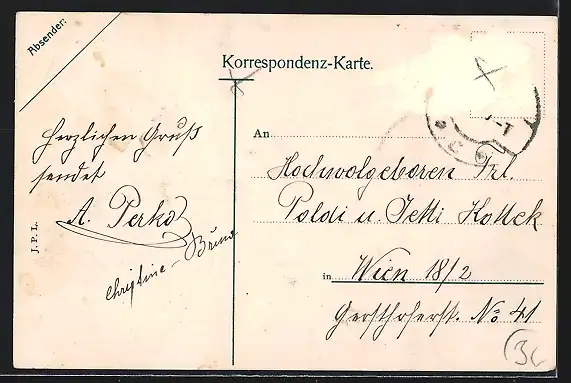 Absender:
Korrespondenz-Karte.
Herzlichen Gruß
sendet
A. Perko
Christine - Bruno
J. P. L.
An
Hochwolgeboren Frl.
Poldi u. Jetti Kottek
in Wien 18/2
Gersthoferst. No 41